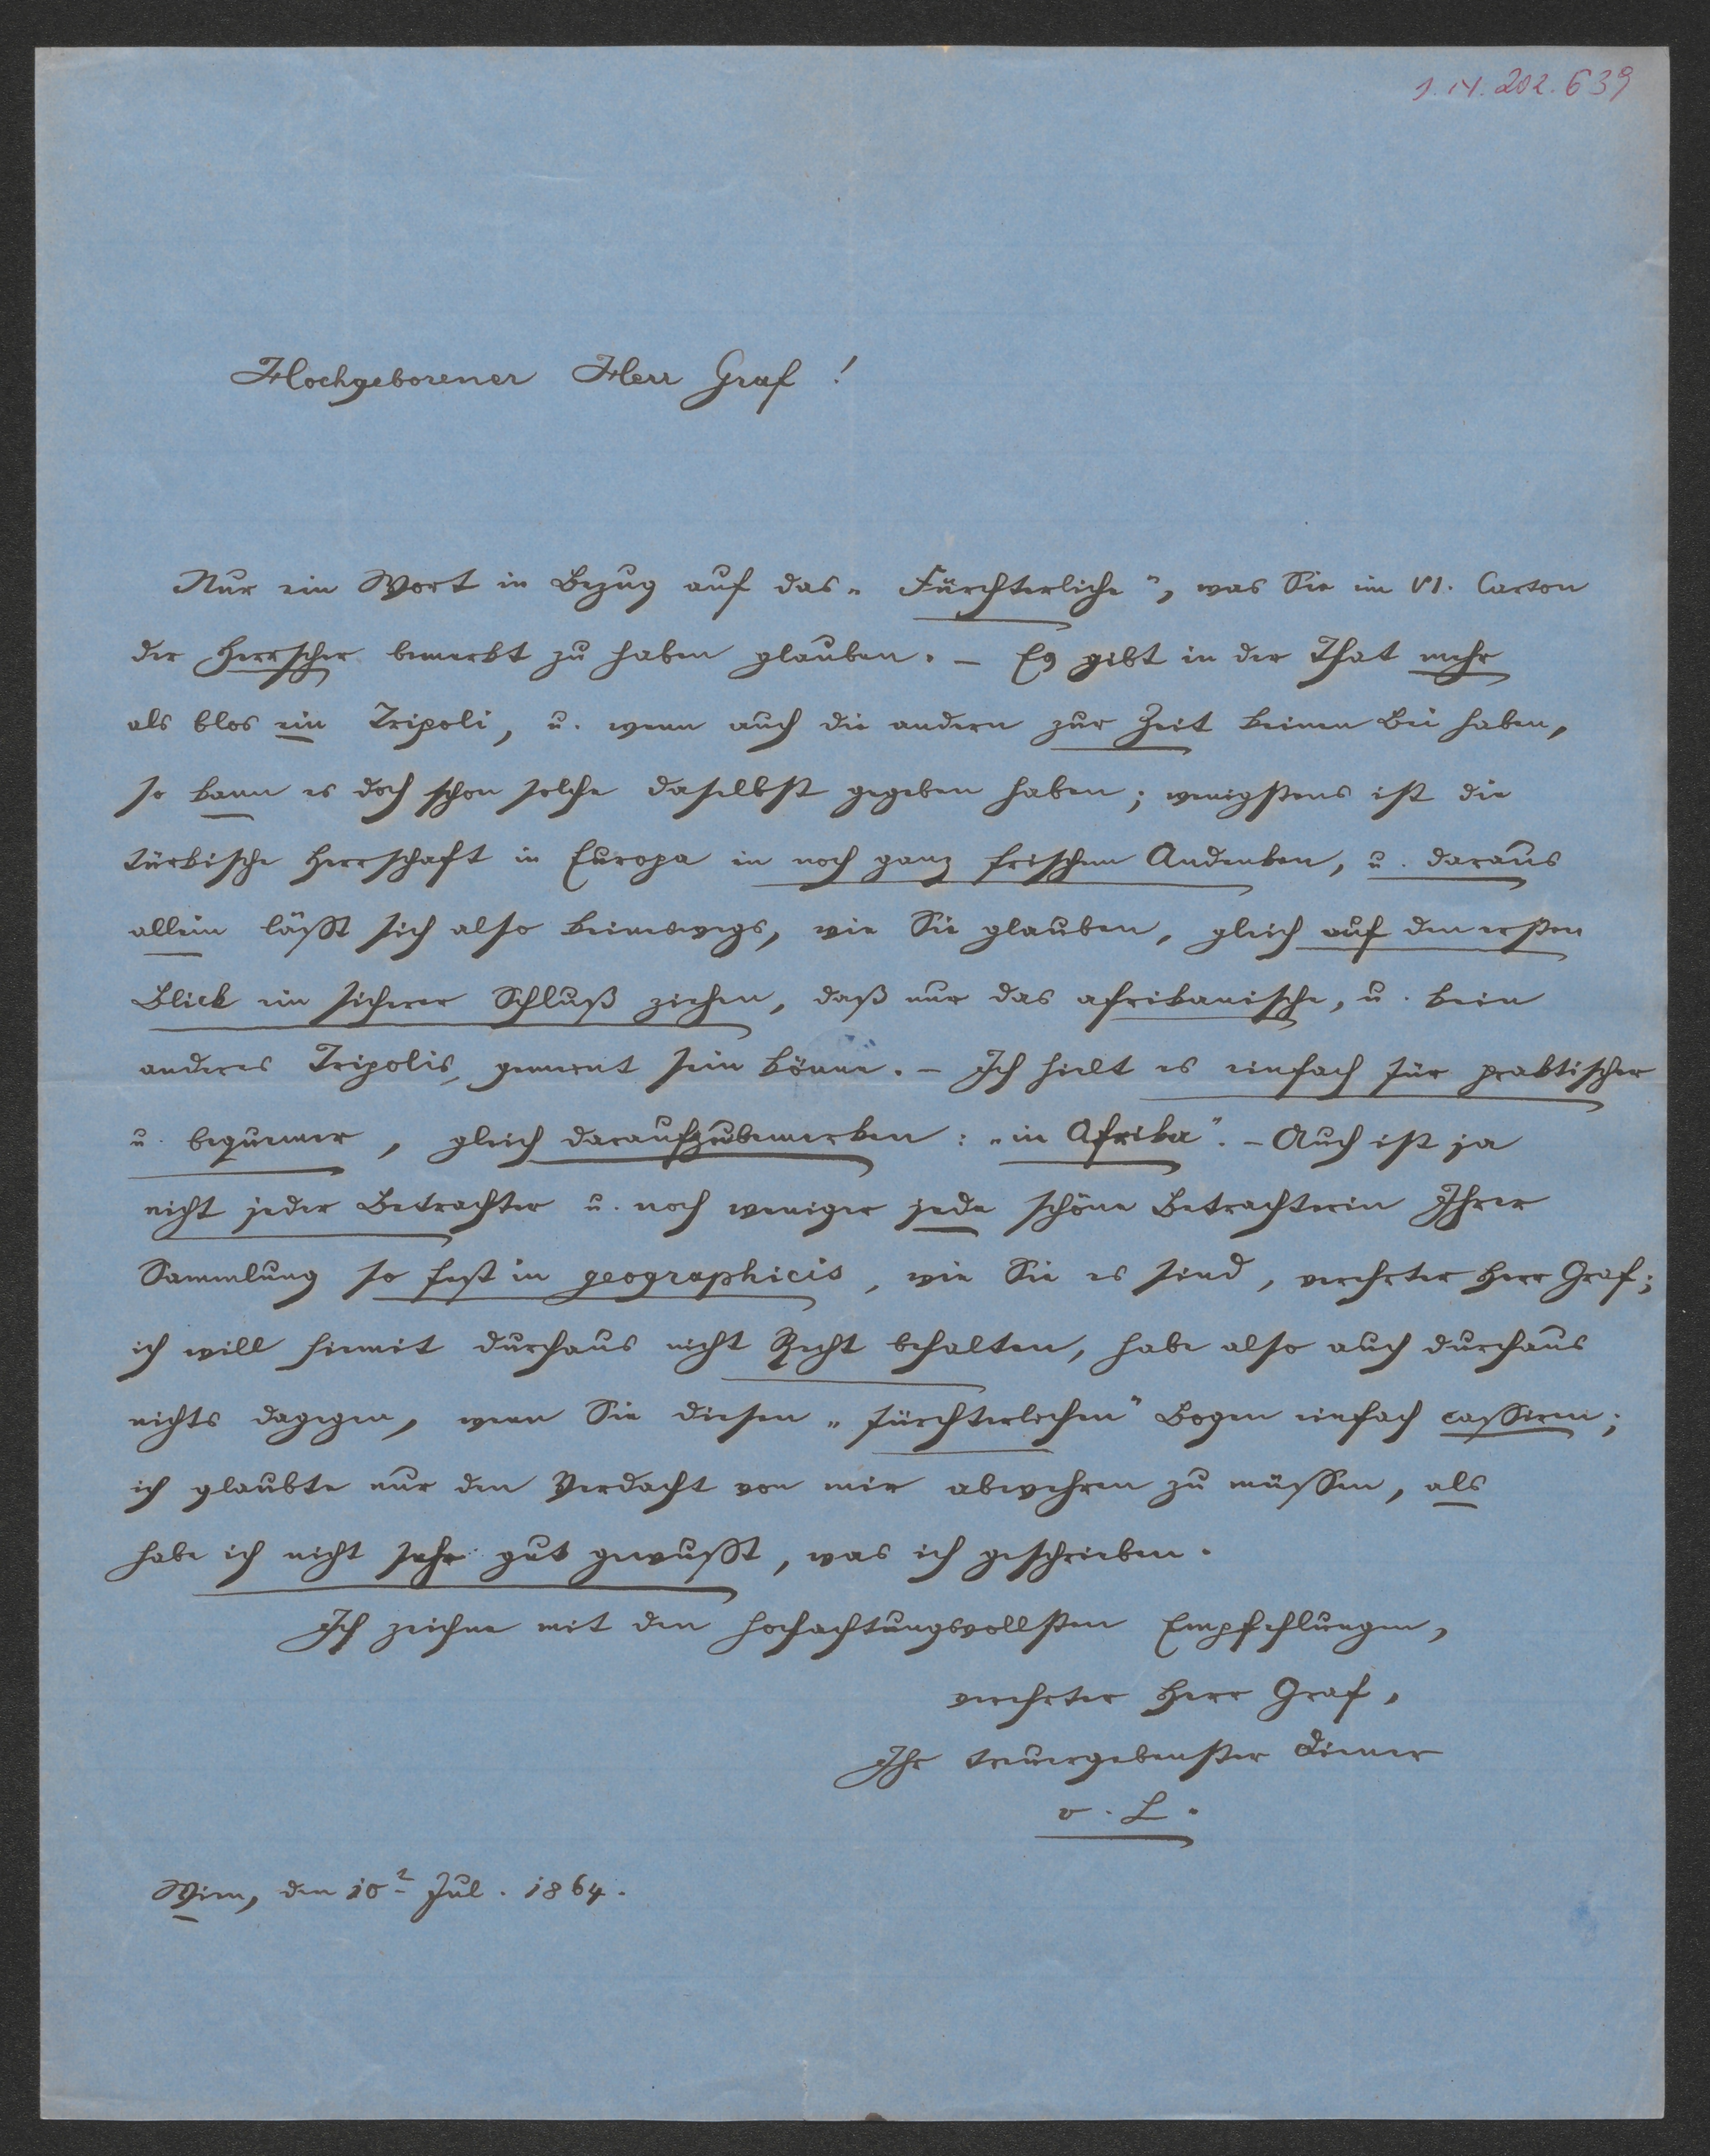 J. N. 202.639
Hochgeborener Herr Graf!
Nur ein Wort in Bezug auf das „Fürchterliche", was Sie im VI. Carton
der Herrscher bemerkt zu haben glauben. – Es gibt in der That mehr
als blos ein Tripoli, u. wenn auch die andern zur Zeit keinen Bei haben,
so kann es doch schon solche daselbst gegeben haben; wenigstens ist die
türkische Herrschaft in Europa in noch ganz frischem Andenken, u. daraus
allein läßt sich also keineswegs, wie Sie glauben, gleich auf den ersten
Blick ein sicherer Schluß ziehen, daß nur das afrikanische, u. kein
anderes Tripolis, gemeint sein könne. – Ich hielt es einfach für praktischer
u. bequemer, gleich daraufzubemerken: „in Afrika". – Auch ist ja
nicht jeder Betrachter u. noch weniger jede schöne Betrachterin Ihrer
Sammlung so fest in geographicis, wie Sie es sind, verehrter Herr Graf;
ich will hiemit durchaus nicht Recht behalten, habe also auch durchaus
nichts dagegen, wenn Sie diesen „fürchterlichen" Bogen einfach cassiren;
ich glaubte nur den Verdacht von mir abwehren zu müssen, als
habe ich nicht sehr gut gewußt, was ich geschrieben.
Ich zeichne mit den hochachtungsvollsten Empfehlungen,
verehrter Herr Graf,
Ihr treuergebenster Diener
v. L.
Wien, den 10t Jul. 1864.